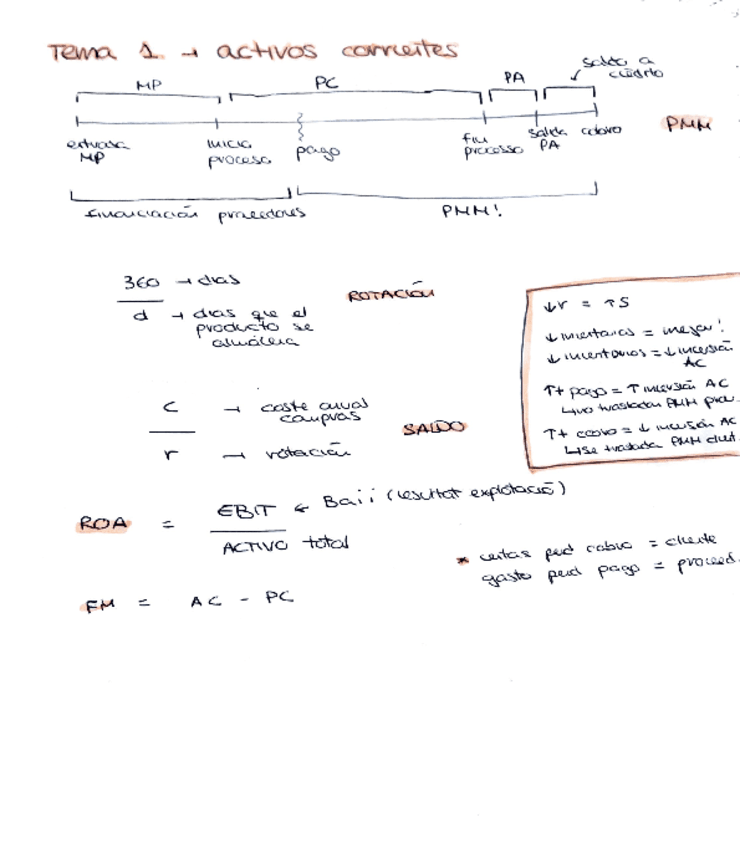 Tema 1 → activos corrientes
MP PC PA saldo a
cliente
entrada MP
inicio proceso
pago
fin proceso
salida PA
cobro
PMM
financiación proveedores
PMM!
360 → dias
d → dias que el
producto se
almacena
ROTACIÓN
C → coste anual
compras
r → rotación
SALDO
↓r = ↑S
↓ inventarios = mejor!
↓ inventarios = ↓ inversión
AC
↑t pago = ↑ inversión AC
↳ no trasladan PMM prov.
↑t cobro = ↓ inversión AC
↳ se traslada PMM client.
ROA = EBIT ← Baii (resultat explotació)
ACTIVO total
* ventas pend cobro = cliente
gasto pend pago = proveed.
FM = AC - PC